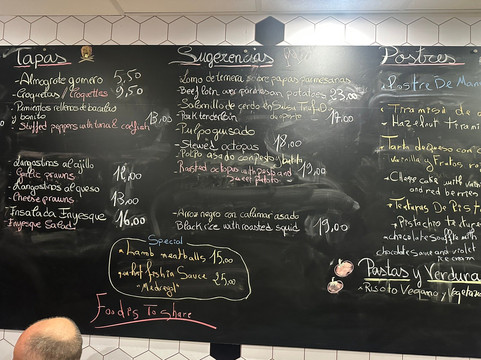 Tapas
- Almogrote gomero 5,50
- Croquetas / Croquettes 9,50
- Pimientos rellenos de bacalao
y bonito 13,00
- Stuffed peppers with tuna & codfish
- Langostinos al ajillo
Garlic prawns
- Langostinos al queso
- Cheese prawns 13,00
- Insalada Fayesque
Fayesque Salad 16,00
Sugerencias
- Lomo de ternera sobre papas parmesanas
- Beef loin over parmesan potatoes 23,00
- Solomillo de cerdo en salsa
- Pork tenderloin 17,00
- Pulpo guisado
- Stewed octopus 18,00
- Pulpo asado con pesto y batata
- Roasted octopus with pesto and
sweet potato 19,00
- Arroz negro con calamar asado
Black rice with roasted squid 19,00
Special
Lamb meatballs 15,00
fish in Sauce 25,00
Foods To Share
Postres
Postre De
Tiramisú de
Hazelnut
Tarta de queso con
vainilla y frutos
Cheese cake with
and red berries
Texturas De
Pistachio
chocolate souffle with
chocolate sauce and violet
ice cream
Pastas y Verdura
- Risoto Vegano